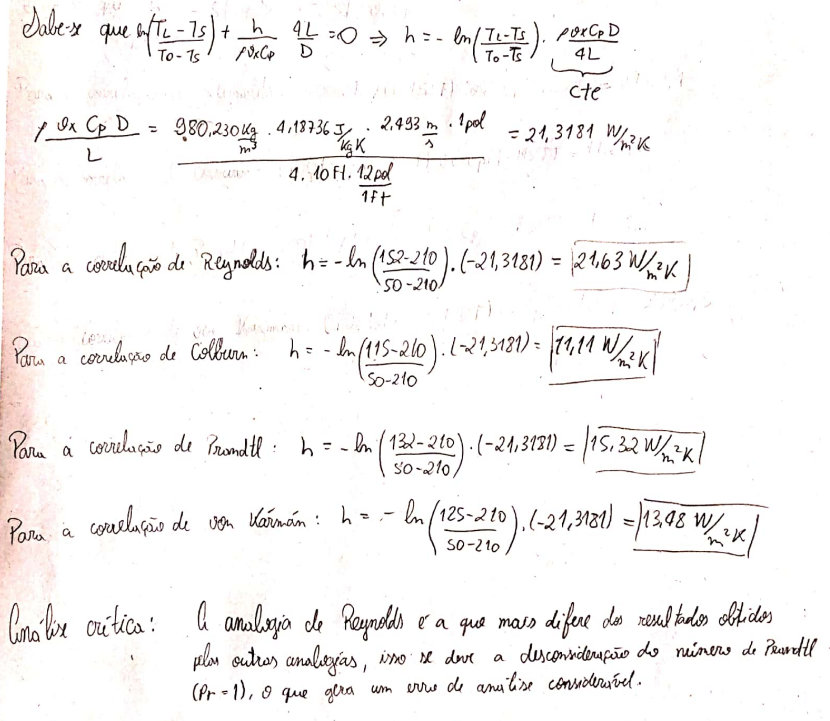 Sabe-se que ln(TL - Ts / To - Ts) + h / ρ ϑx Cp 4L / D = 0 ⇒ h = - ln(TL - Ts / To - Ts) · ρ ϑx Cp D / 4L
cte
ρ ϑx Cp D / L = 980,230 kg/m³ · 4,18736 J/kg K · 2,493 m/s · 1pol / 4 · 10 Ft · 12 pol / 1 ft = 21,3181 W/m²K
Para a correlação de Reynolds: h = - ln(152-210 / 50-210) · (-21,3181) = 21,63 W/m²K
Para a correlação de Colburn: h = - ln(115-210 / 50-210) · (-21,3181) = 11,11 W/m²K
Para a correlação de Prandtl: h = - ln(132-210 / 50-210) · (-21,3181) = 15,32 W/m²K
Para a correlação de von Kármán: h = - ln(125-210 / 50-210) · (-21,3181) = 13,48 W/m²K
Análise crítica: A analogia de Reynolds é a que mais difere dos resultados obtidos
pelas outras analogias, isso se deve a desconsideração do número de Prandtl
(Pr = 1), o que gera um erro de análise considerável.